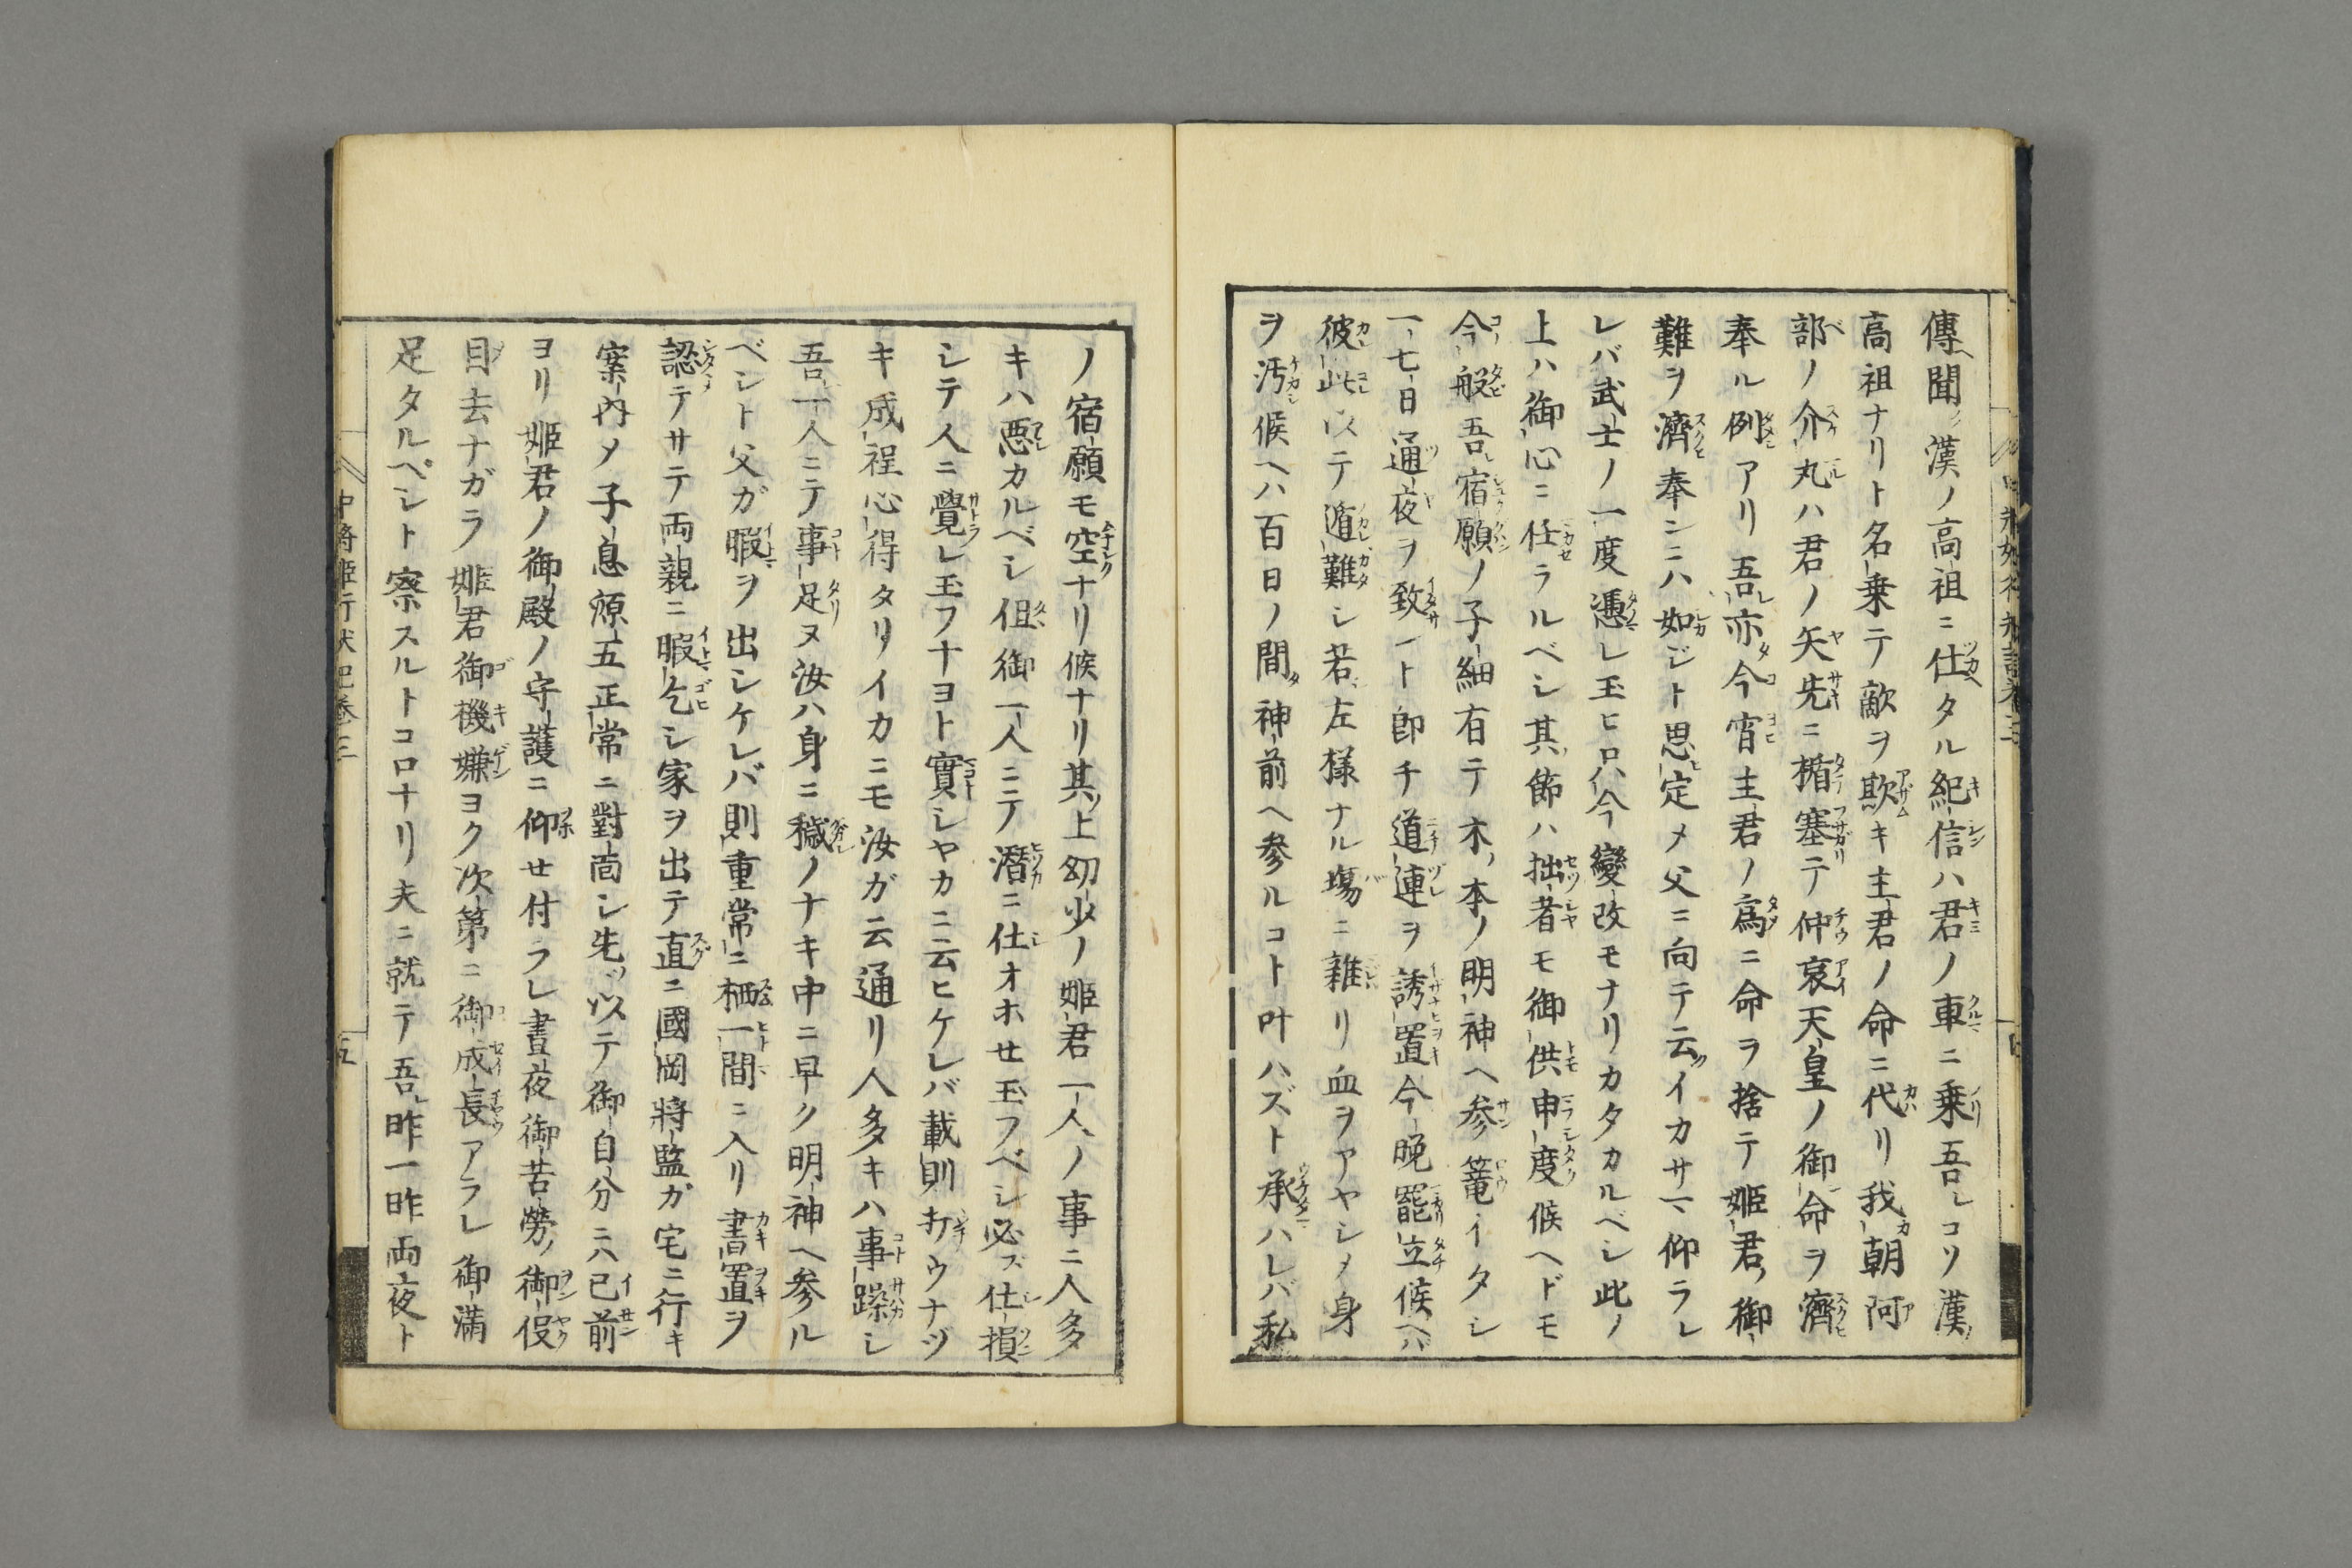 傳聞漢ノ高祖ニ仕タル紀信ハ君ノ車ニ乗吾レコソ漢ノ
高祖ナリト名乗テ敵ヲ欺キ主君ノ命ニ代リ我朝阿
部ノ介丸ハ君ノ矢先ニ楯塞テ仲哀天皇ノ御命ヲ濟
奉ル例アリ吾亦今宵主君ノ爲ニ命ヲ捨テ姫君ノ御
難ヲ濟奉ンニハ如ジト思定メ父ニ向テ云イカサマ仰ラレ
レバ武士ノ一度憑レ玉ヒ口ハ今變改モナリカタカルベシ此ノ
上ハ御心ニ任ラルベシ其節ハ拙者モ御供申度候ヘドモ
今般吾宿願ノ子細有テ木ノ本ノ明神ヘ参篭イタシ
一七日通夜ヲ致ント即チ道連ヲ誘置今晩罷立候ヘバ
彼此以テ遁難シ若左様ナル場ニ雜リ血ヲアヤシメ身
ヲ汚候ヘハ百日ノ間神前ヘ参ルコト叶ハズト承ハレバ私
ノ宿願モ空ナリ候ナリ其上幼少ノ姫君一人ノ事ニ人多
キハ悪カルベシ伹御一人ニテ潜ニ仕オホセ玉フベシ必ズ仕損
シテ人ニ覺レ玉フナヨト實シヤカニ云ヒケレバ載則打ウナヅ
キ成程心得タリイカニモ汝ガ云通リ人多キハ事躁シ
吾一人ニテ事足ヌ汝ハ身ニ穢ノナキ中ニ早ク明神ヘ参ル
ベシト父ガ暇ヲ出シケレバ則重常ニ栖一間ニ入リ書置ヲ
認テサテ両親ニ暇乞シ家ヲ出テ直ニ國岡將監ガ宅ニ行キ
案内メ子息源五正常ニ對面シ先ヅ以テ御自分ニハ已前
ヨリ姫君ノ御殿ノ守護ニ仰せ付ラレ晝夜御苦勞ノ御役
目去ナガラ姫君御機嫌ヨク次第ニ御成長アラレ御満
足タルベシト察スルトコロナリ夫ニ就テ吾昨一昨両夜ト
中將姫行状記巻三
五